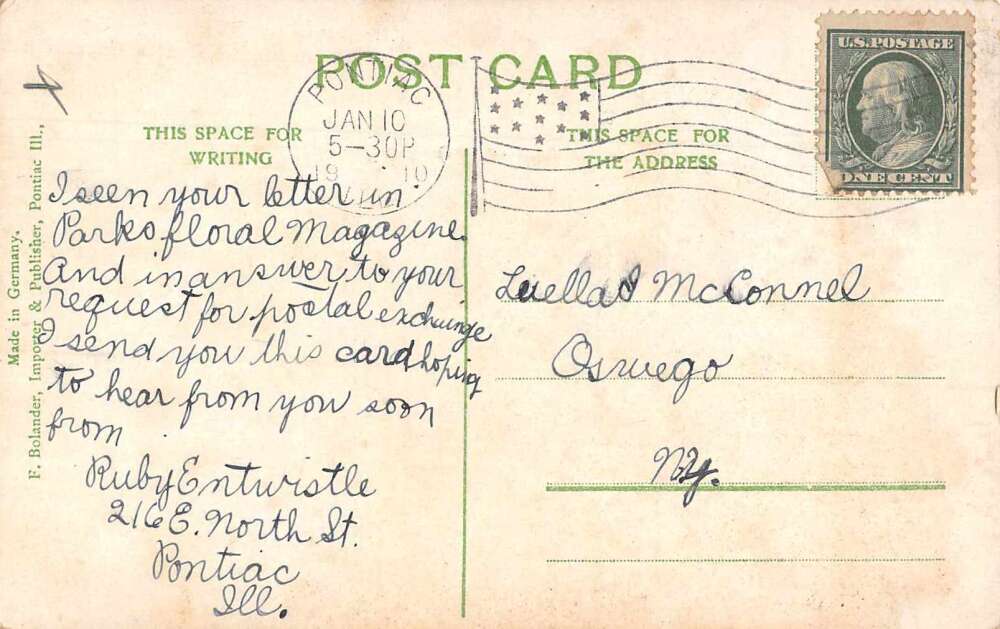 POST CARD
THIS SPACE FOR
WRITING
THIS SPACE FOR
THE ADDRESS
PONTIAC
JAN 10
5-30P
1910
ILL.
U.S. POSTAGE
ONE CENT
Made in Germany.
F. Bolander, Importer & Publisher, Pontiac Ill.,
I seen your letter in
Parks floral Magazine.
And in answer to your
request for postal exchange
I send you this card hoping
to hear from you soon
from
Ruby Entwistle
216 E. North St.
Pontiac
Ill.
Luella McConnel
Oswego
NY.